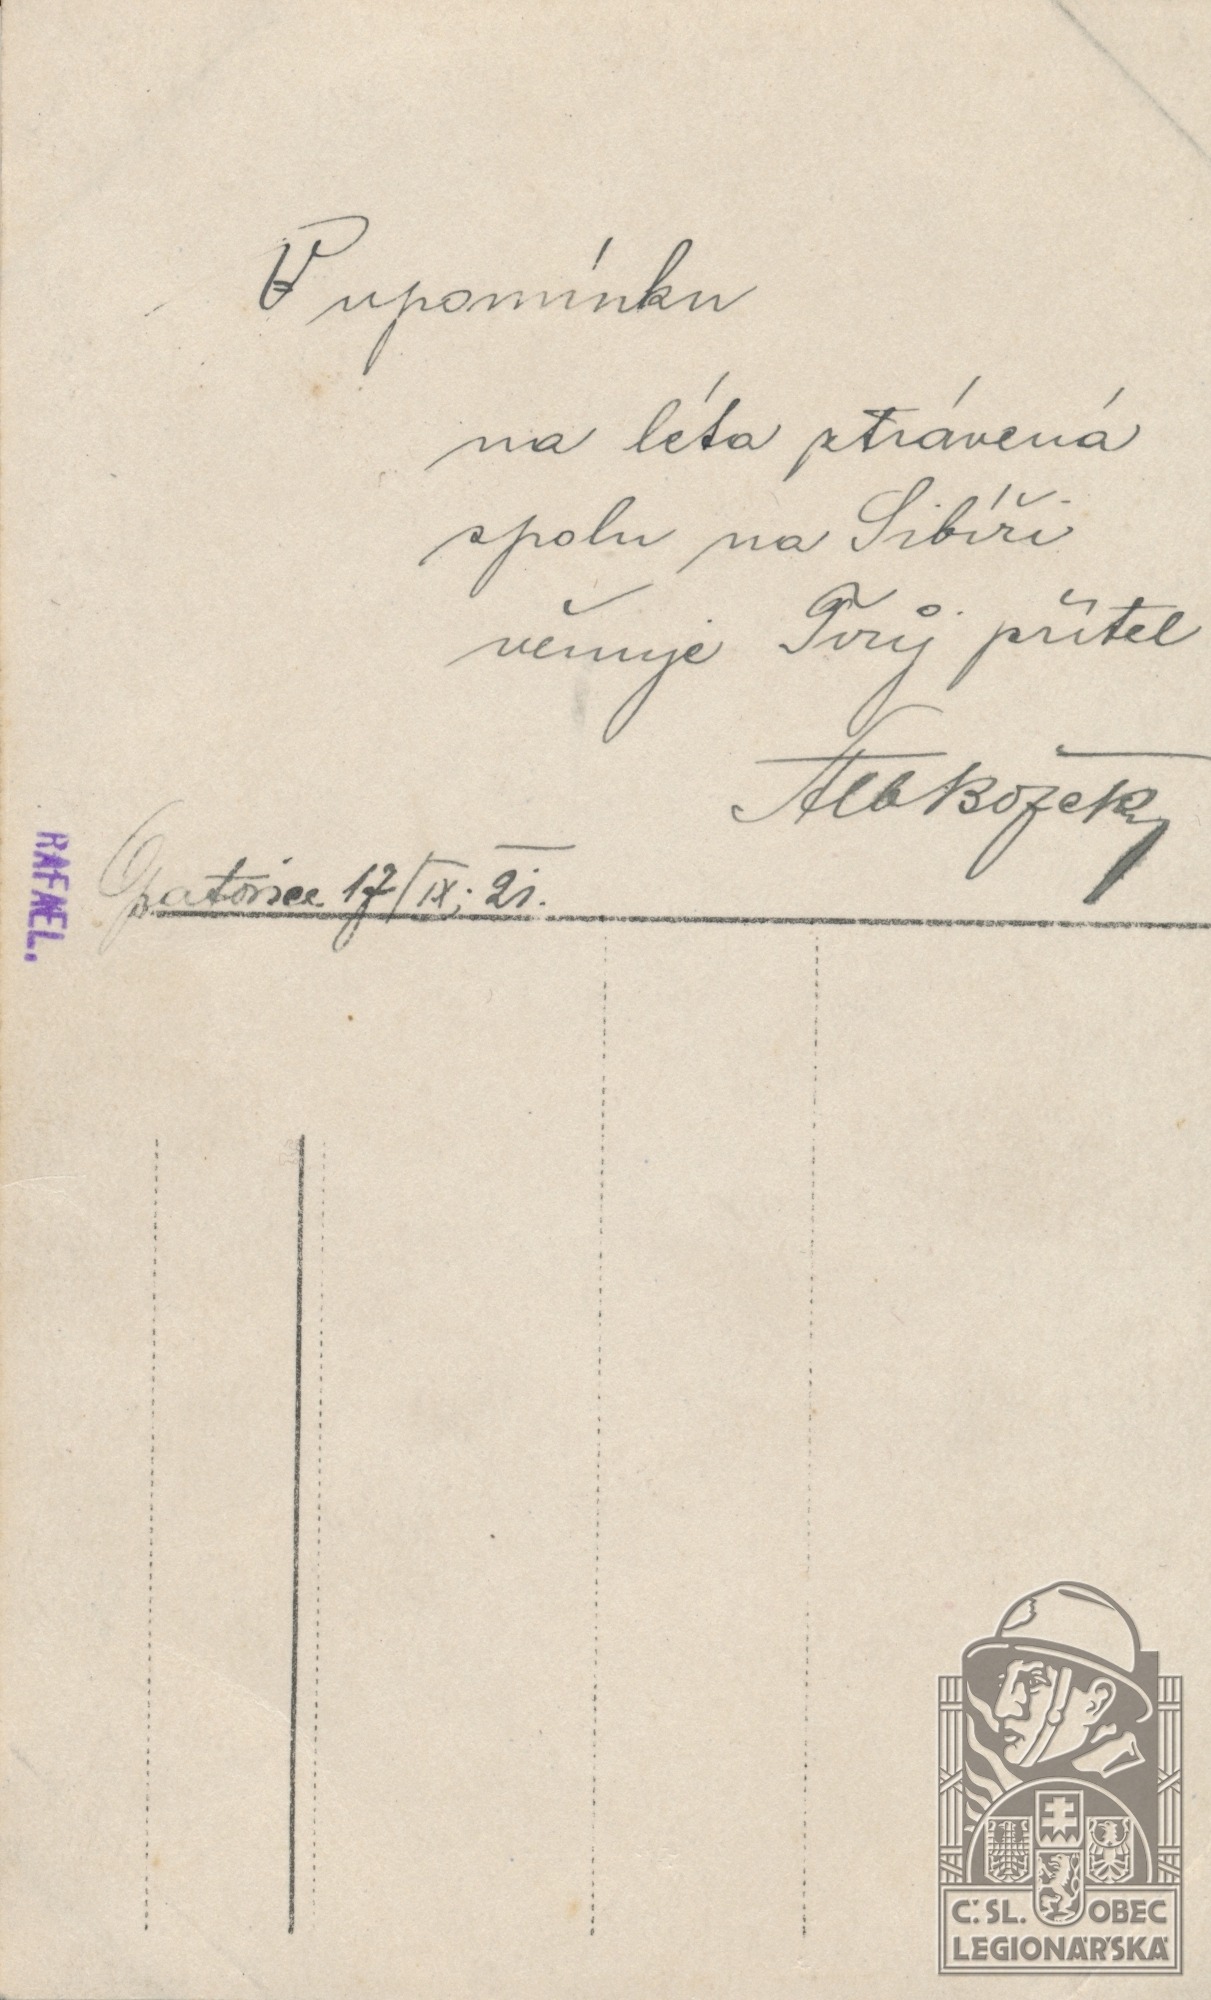 V upomínku
na léta ztrávená
spolu na Sibíři
věnuje Tvůj přítel
Alb
17/IX. 21.
RAFAEL.
Č. SL. OBEC
LEGIONÁŘSKÁ